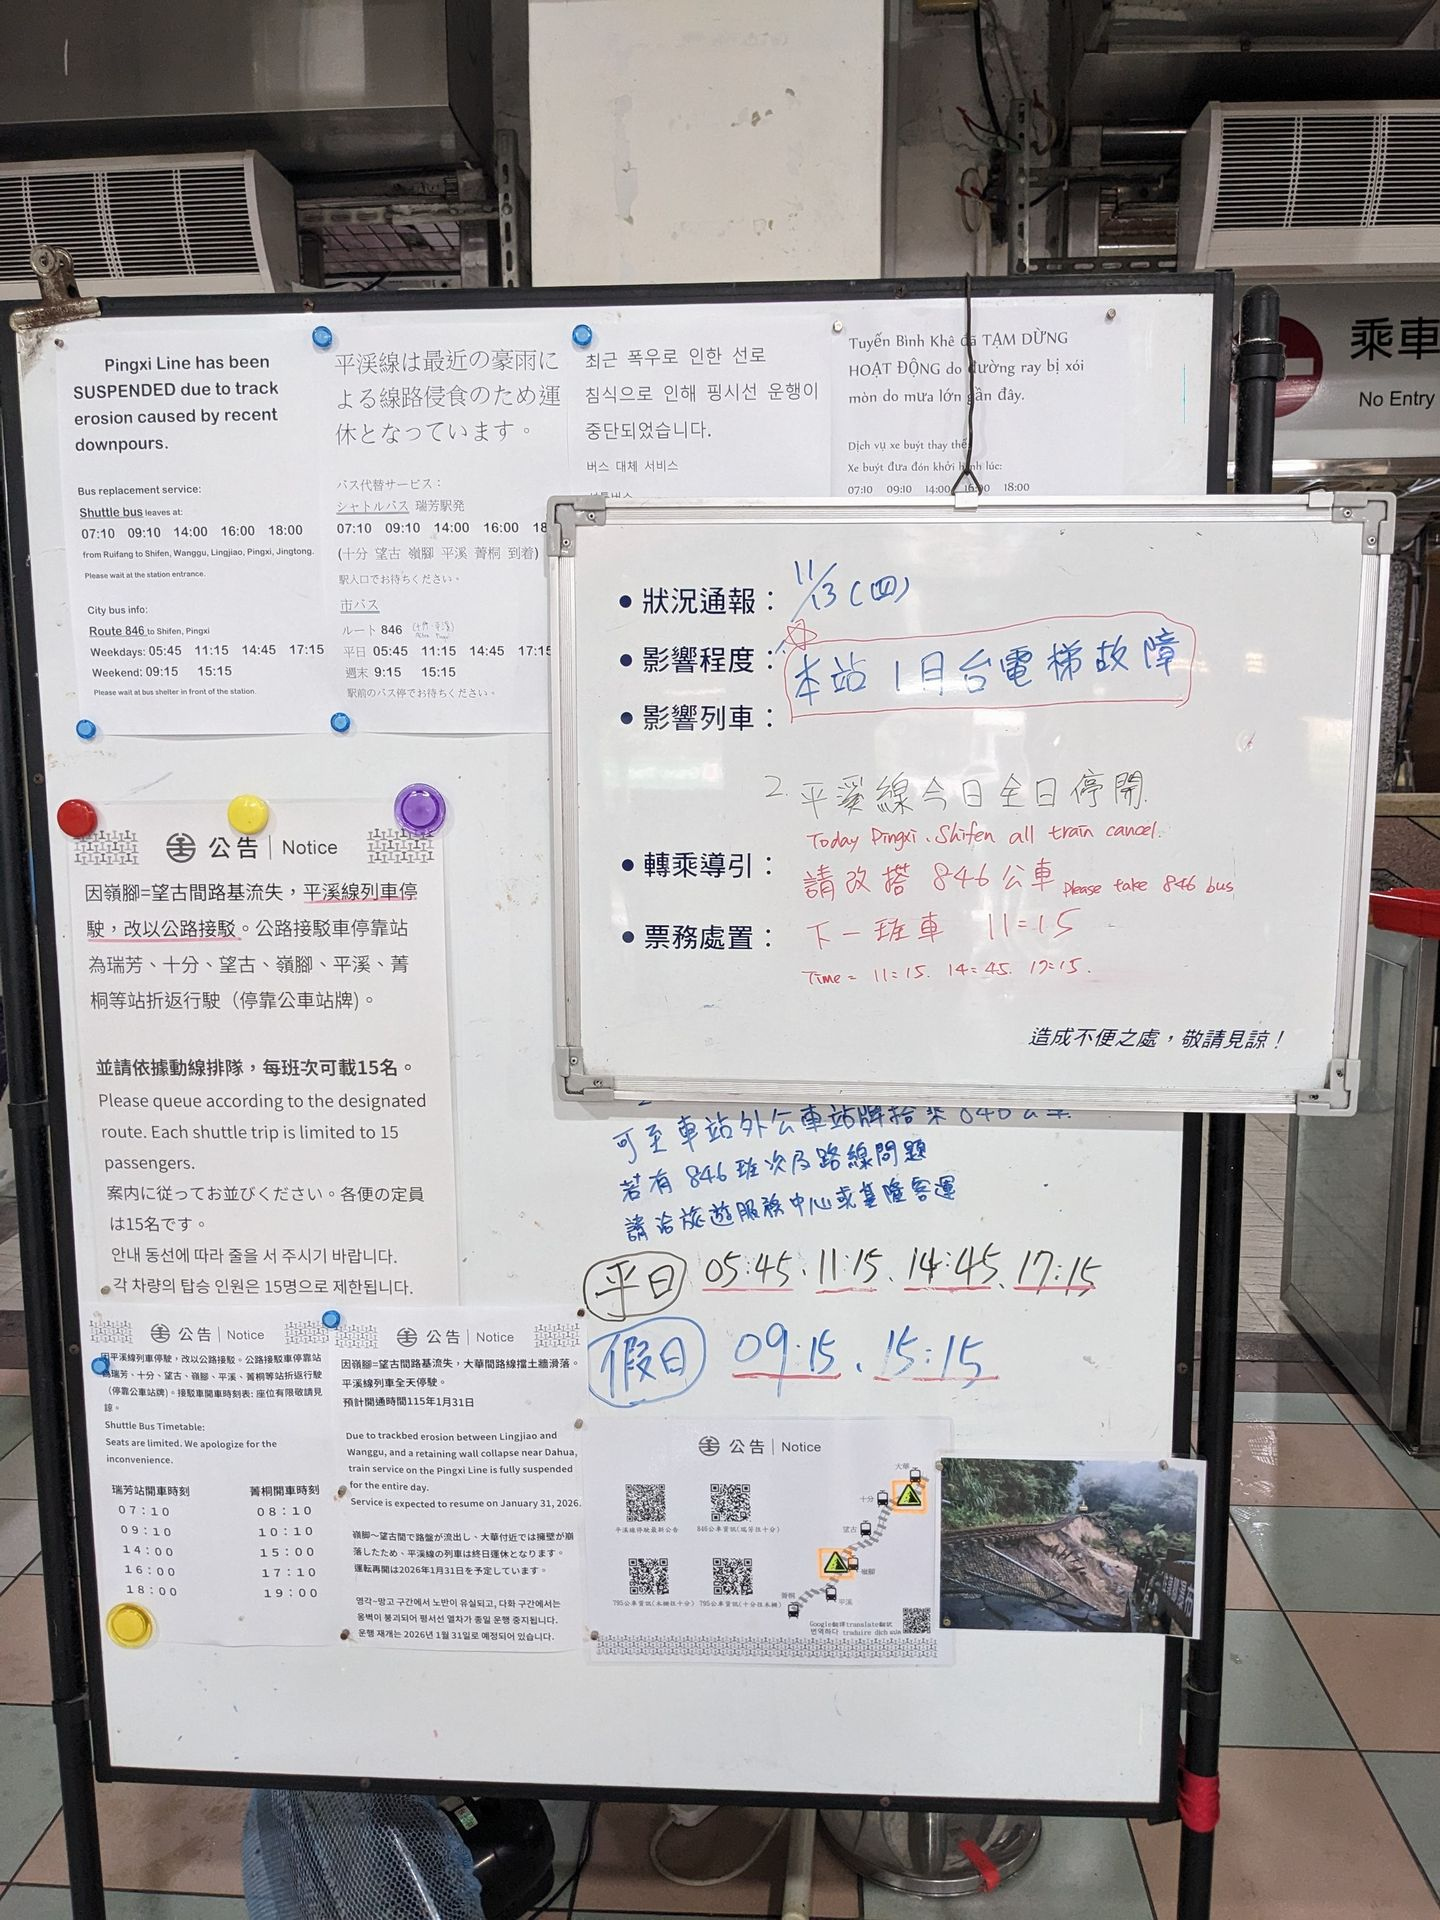 Pingxi Line has been
SUSPENDED due to track
erosion caused by recent
downpours.
Bus replacement service:
Shuttle bus leaves at:
07:10 09:10 14:00 16:00 18:00
from Ruifang to Shifen, Wanggu, Lingjiao, Pingxi, Jingtong.
Please wait at the station entrance.
City bus info:
Route 846 to Shifen, Pingxi
Weekdays: 05:45 11:15 14:45 17:15
Weekend: 09:15 15:15
Please wait at bus shelter in front of the station.
平渓線は最近の豪雨に
よる線路侵食のため運
休となっています。
バス代替サービス：
シャトルバス 瑞芳駅発
07:10 09:10 14:00 16:00 18
(十分 望古 嶺腳 平溪 菁桐 到着)
駅入口でお待ちください。
市バス
ルート 846
平日 05:45 11:15 14:45 17:15
週末 9:15 15:15
駅前のバス停でお待ちください。
최근 폭우로 인한 선로
침식으로 인해 핑시선 운행이
중단되었습니다.
버스 대체 서비스
Tuyến Bình Khê đã TẠM DỪNG
HOẠT ĐỘNG do đường ray bị xói
mòn do mưa lớn gần đây.
Dịch vụ xe buýt thay thế:
Xe buýt đưa đón khởi hành lúc:
07:10 09:10 14:00 16:00 18:00
乘車
No Entry
狀況通報：11/13(四)
影響程度：本站1月台電梯故障
影響列車：
2. 平溪線今日全日停開
Today Pingxi、Shifen all train cancel.
轉乘導引：請改搭 846公車 Please take 846 bus
票務處置：下一班車 11=15
Time= 11=15. 14=45. 17=15.
造成不便之處，敬請見諒！
可至車站外公車站牌搭乘 846公車
若有 846班次及路線問題
請洽旅遊服務中心或基隆客運
平日 05:45、11:15、14:45、17:15
假日 09:15、15:15
公告 | Notice
因嶺腳=望古間路基流失，平溪線列車停
駛，改以公路接駁。公路接駁車停靠站
為瑞芳、十分、望古、嶺腳、平溪、菁
桐等站折返行駛（停靠公車站牌）。
並請依據動線排隊，每班次可載15名。
Please queue according to the designated
route. Each shuttle trip is limited to 15
passengers.
案内に従ってお並びください。各便の定員
は15名です。
안내 동선에 따라 줄을 서 주시기 바랍니다.
각 차량의 탑승 인원은 15명으로 제한됩니다.
公告 | Notice
因平溪線列車停駛，改以公路接駁。公路接駁車停靠站
為瑞芳、十分、望古、嶺腳、平溪、菁桐等站折返行駛
（停靠公車站牌）。接駁車開車時刻表：座位有限敬請見
諒。
Shuttle Bus Timetable:
Seats are limited. We apologize for the
inconvenience.
瑞芳站開車時刻 菁桐開車時刻
07：10 08：10
09：10 10：10
14：00 15：00
16：00 17：10
18：00 19：00
公告 | Notice
因嶺腳=望古間路基流失，大華間路線擋土牆滑落。
平溪線列車全天停駛。
預計開通時間115年1月31日
Due to trackbed erosion between Lingjiao and
Wanggu, and a retaining wall collapse near Dahua,
train service on the Pingxi Line is fully suspended
for the entire day.
Service is expected to resume on January 31, 2026.
嶺脚～望古間で路盤が流出し、大華付近では擁壁が崩
落したため、平渓線の列車は終日運休となります。
運転再開は2026年1月31日を予定しています。
영각~망고 구간에서 노반이 유실되고, 다화 구간에서는
옹벽이 붕괴되어 평서선 열차가 종일 운행 중지됩니다.
운행 재개는 2026년 1월 31일로 예정되어 있습니다.
公告 | Notice
平溪線停駛最新公告 846公車資訊(瑞芳往十分)
795公車資訊(木柵往十分) 795公車資訊(十分往木柵)
大華
十分
望古
嶺腳
平溪
菁桐
Google翻譯translate翻訳
번역하다 traduire dịch